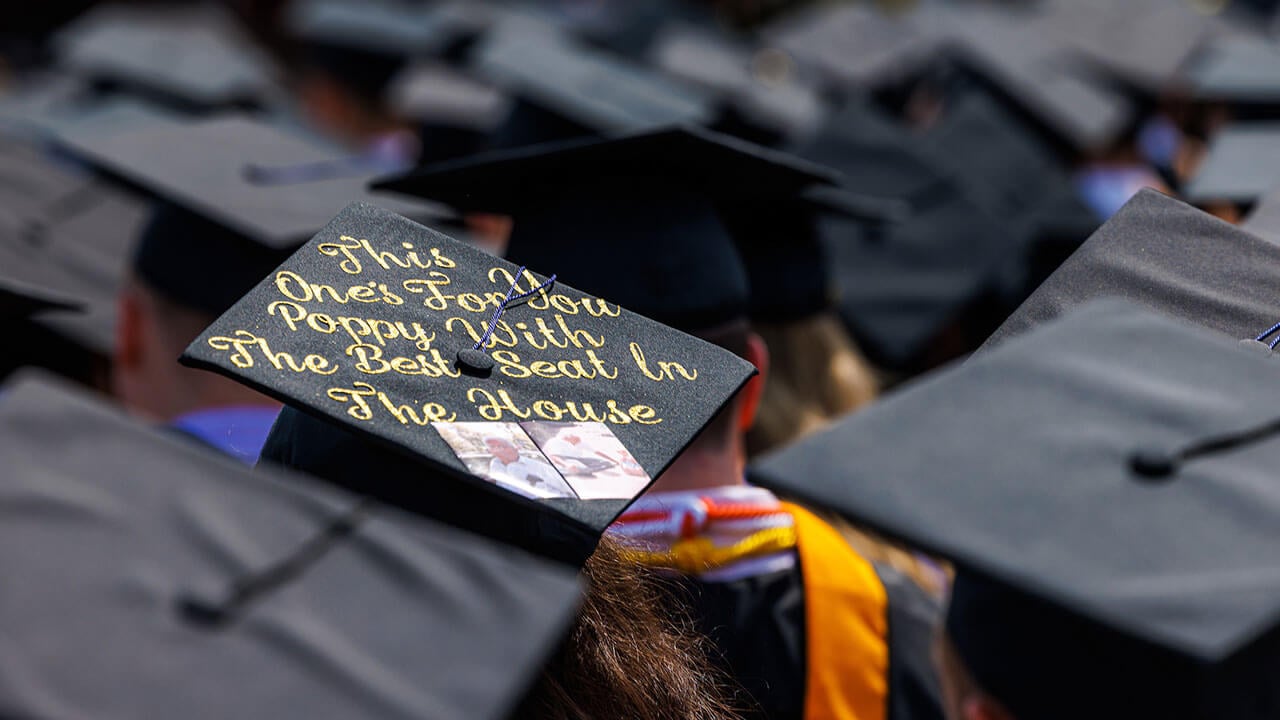 This
One's For You
Poppy With
The Best Seat In
The House